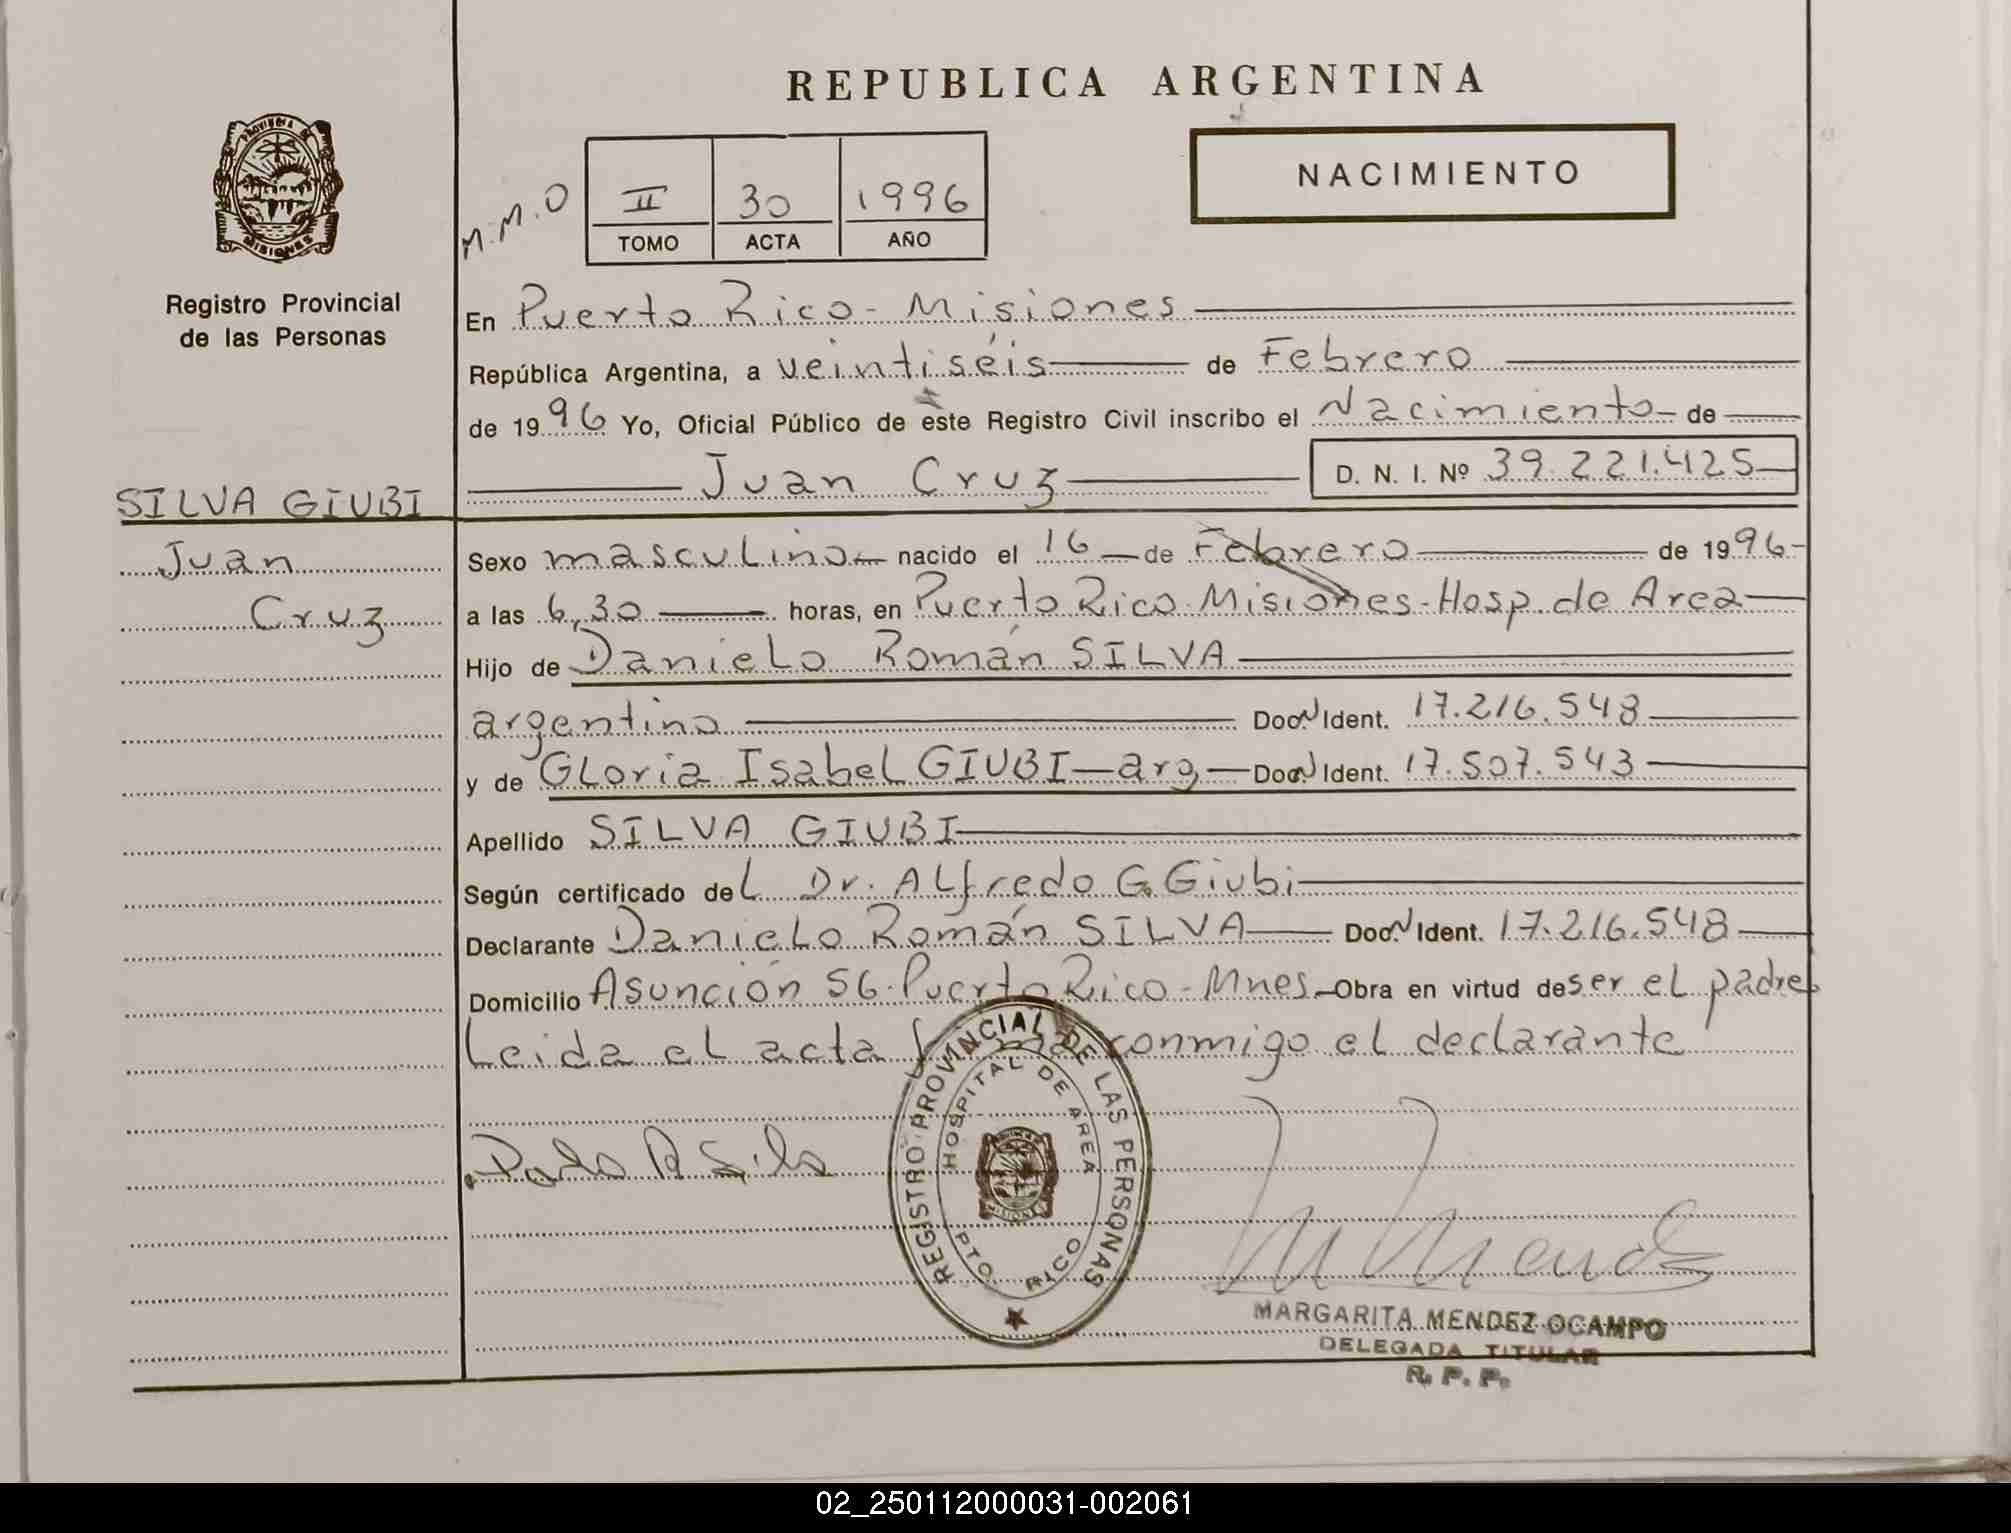 REPUBLICA ARGENTINA
PROVINCIA DE
MISIONES
Registro Provincial
de las Personas
M.M.O
II 30 1996
TOMO ACTA AÑO
NACIMIENTO
En Puerto Rico - Misiones
República Argentina, a veintiséis de Febrero
de 1996 Yo, Oficial Público de este Registro Civil inscribo el Nacimiento de
Juan Cruz D. N. I. Nº 39.221.425
SILVA GIUBI
Juan
Cruz
Sexo masculino nacido el 16 de Febrero de 1996
a las 6,30 horas, en Puerto Rico - Misiones - Hosp. de Area
Hijo de Danielo Román SILVA
argentino Doc. N Ident. 17.216.548
y de Gloria Isabel GIUBI - arg - Doc. N Ident. 17.507.543
Apellido SILVA GIUBI
Según certificado del Dr. Alfredo G. Giubi
Declarante Danielo Román SILVA Doc. N Ident. 17.216.548
Domicilio Asunción 56 - Puerto Rico - Mnes - Obra en virtud de ser el padre
Leida el acta conmigo el declarante
REGISTRO PROVINCIAL DE LAS PERSONAS
HOSPITAL DE AREA
MISIONES
PTO. RICO
MARGARITA MENDEZ OCAMPO
DELEGADA TITULAR
R. P. P.
02_250112000031-002061